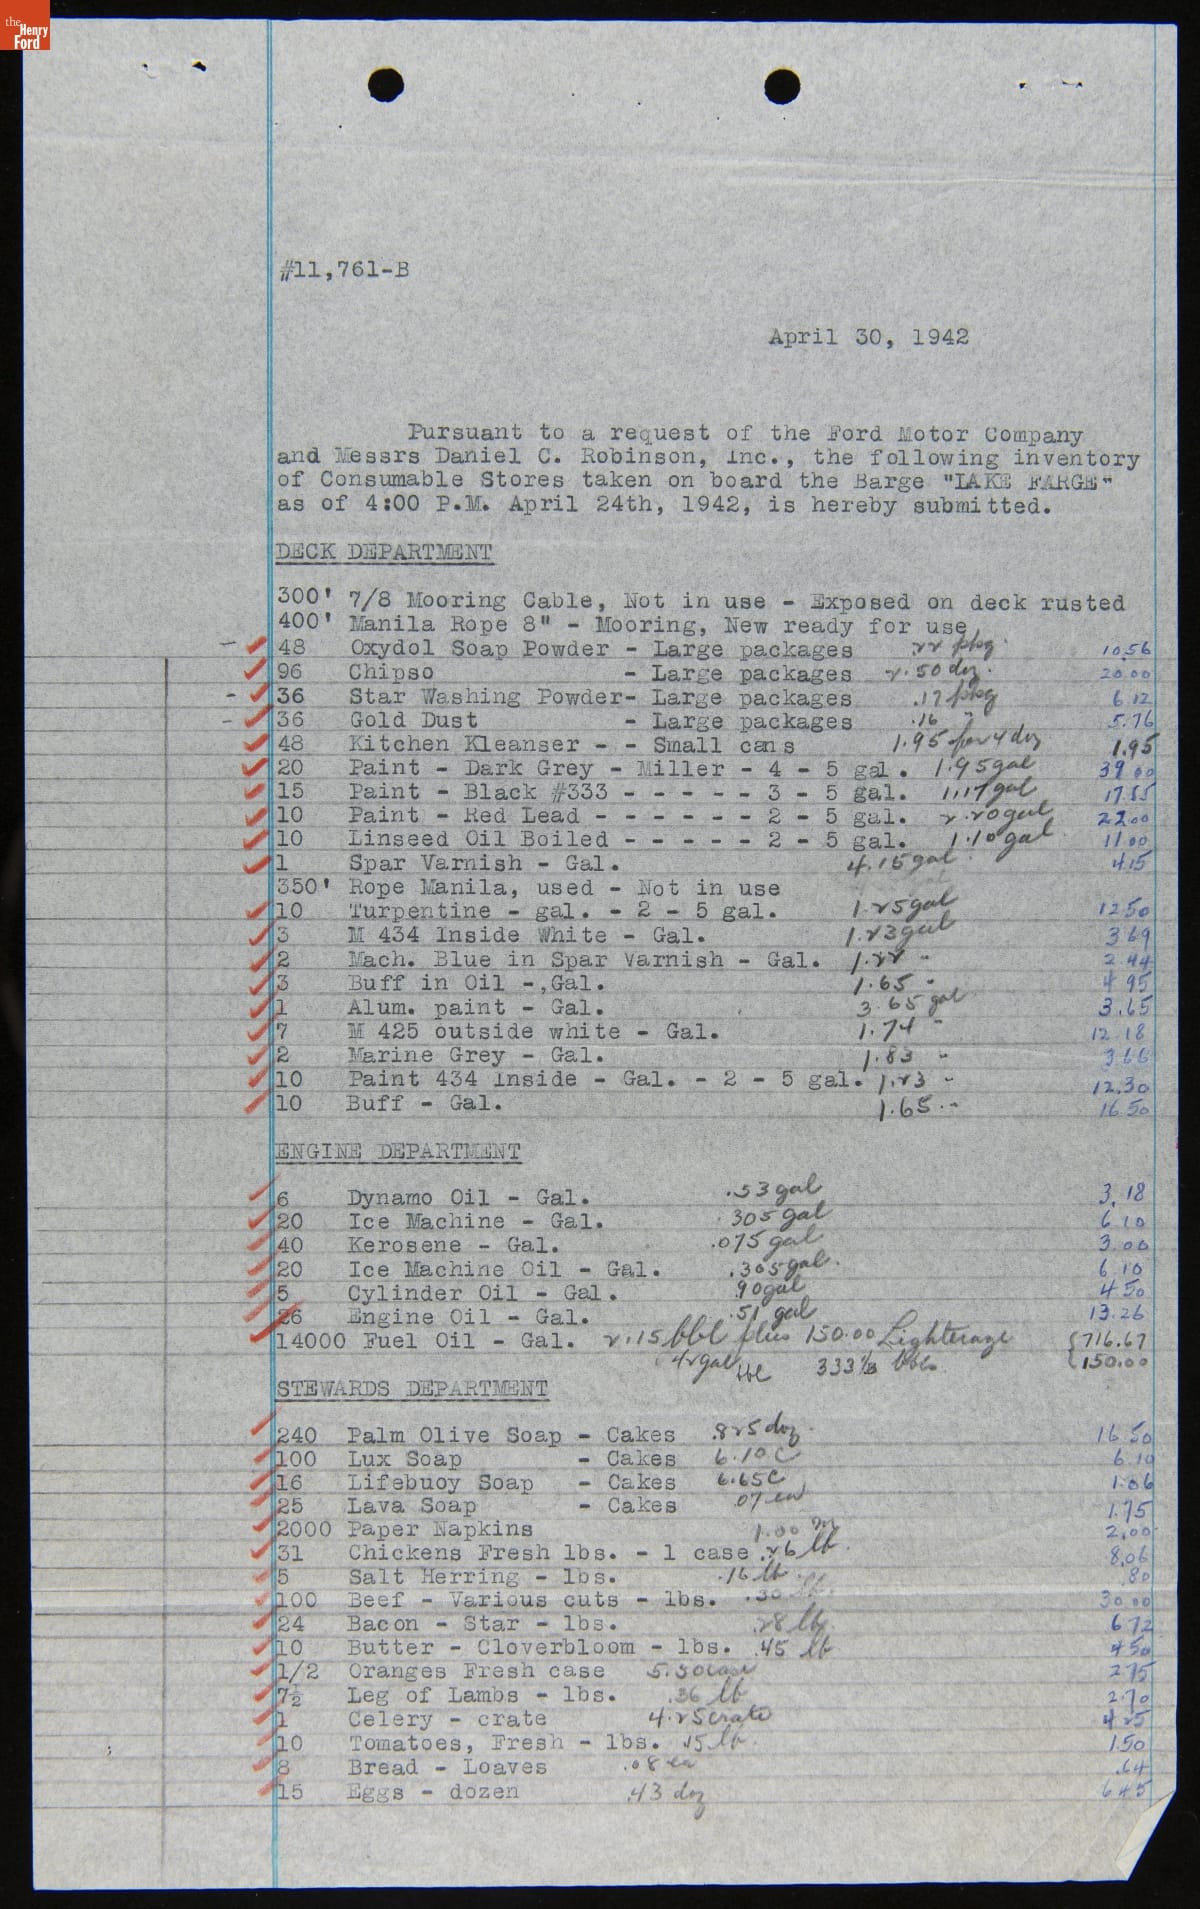 the Henry Ford
#11,761-B
April 30, 1942
Pursuant to a request of the Ford Motor Company
and Messrs Daniel C. Robinson, Inc., the following inventory
of Consumable Stores taken on board the Barge "LAKE FARGE"
as of 4:00 P.M. April 24th, 1942, is hereby submitted.
DECK DEPARTMENT
300' 7/8 Mooring Cable, Not in use - Exposed on deck rusted
400' Manila Rope 8" - Mooring, New ready for use
48 Oxydol Soap Powder - Large packages 22 pkg. 10.56
96 Chipso - Large packages 2.50 dz. 20.00
36 Star Washing Powder- Large packages .17 pkg 6.12
36 Gold Dust - Large packages .16 " 5.76
48 Kitchen Kleanser - - Small cans 1.95 for 4 doz 1.95
20 Paint - Dark Grey - Miller - 4 - 5 gal. 1.95 gal 39.00
15 Paint - Black #333 - - - - - 3 - 5 gal. 1.17 gal 17.55
10 Paint - Red Lead - - - - - - 2 - 5 gal. 2.20 gal 22.00
10 Linseed Oil Boiled - - - - - 2 - 5 gal. 1.10 gal 11.00
1 Spar Varnish - Gal. 4.15 gal. 4.15
350' Rope Manila, used - Not in use
10 Turpentine - gal. - 2 - 5 gal. 1.25 gal 12.50
3 M 434 Inside White - Gal. 1.23 gal 3.69
2 Mach. Blue in Spar Varnish - Gal. 1.22 " 2.44
3 Buff in Oil -,Gal. 1.65 " 4.95
1 Alum. paint - Gal. 3.65 gal 3.65
7 M 425 outside white - Gal. 1.74 " 12.18
2 Marine Grey - Gal. 1.83 " 3.66
10 Paint 434 Inside - Gal. - 2 - 5 gal. 1.23 " 12.30
10 Buff - Gal. 1.65 " 16.50
ENGINE DEPARTMENT
6 Dynamo Oil - Gal. .53 gal 3.18
20 Ice Machine - Gal. .305 gal 6.10
40 Kerosene - Gal. .075 gal 3.00
20 Ice Machine Oil - Gal. .305 gal. 6.10
5 Cylinder Oil - Gal. .90 gal 4.50
26 Engine Oil - Gal. .51 gal 13.26
14000 Fuel Oil - Gal. 2.15 bbl plus 150.00 Lighterage {716.67
42 gal bbl 333 1/3 bbls. {150.00
STEWARDS DEPARTMENT
240 Palm Olive Soap - Cakes .825 doz. 16.50
100 Lux Soap - Cakes 6.10 C 6.10
16 Lifebuoy Soap - Cakes 6.65 C 1.06
25 Lava Soap - Cakes .07 ea 1.75
2000 Paper Napkins 1.00 2.00
31 Chickens Fresh lbs. - 1 case .26 lb. 8.06
5 Salt Herring - lbs. .16 lb. .80
100 Beef - Various cuts - lbs. .30 lb. 30.00
24 Bacon - Star - lbs. .28 lb. 6.72
10 Butter - Cloverbloom - lbs. .45 lb 4.50
1/2 Oranges Fresh case 5.50 case 2.75
7½ Leg of Lambs - lbs. .36 lb 2.70
1 Celery - crate 4.25 crate 4.25
10 Tomatoes, Fresh - lbs. .15 lb. 1.50
8 Bread - Loaves .08 ea .64
15 Eggs - dozen .43 doz 6.45